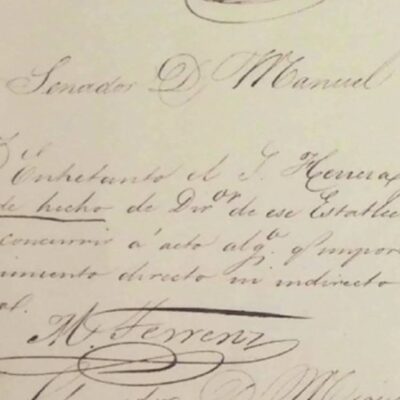 Senador D. Manuel
Entretanto el S. Herrera
de hecho de Dir.or de ese Establec
concurrir á acto alg.o q. impor
cimiento directo ni indirecto
al.
M. Ferrenz